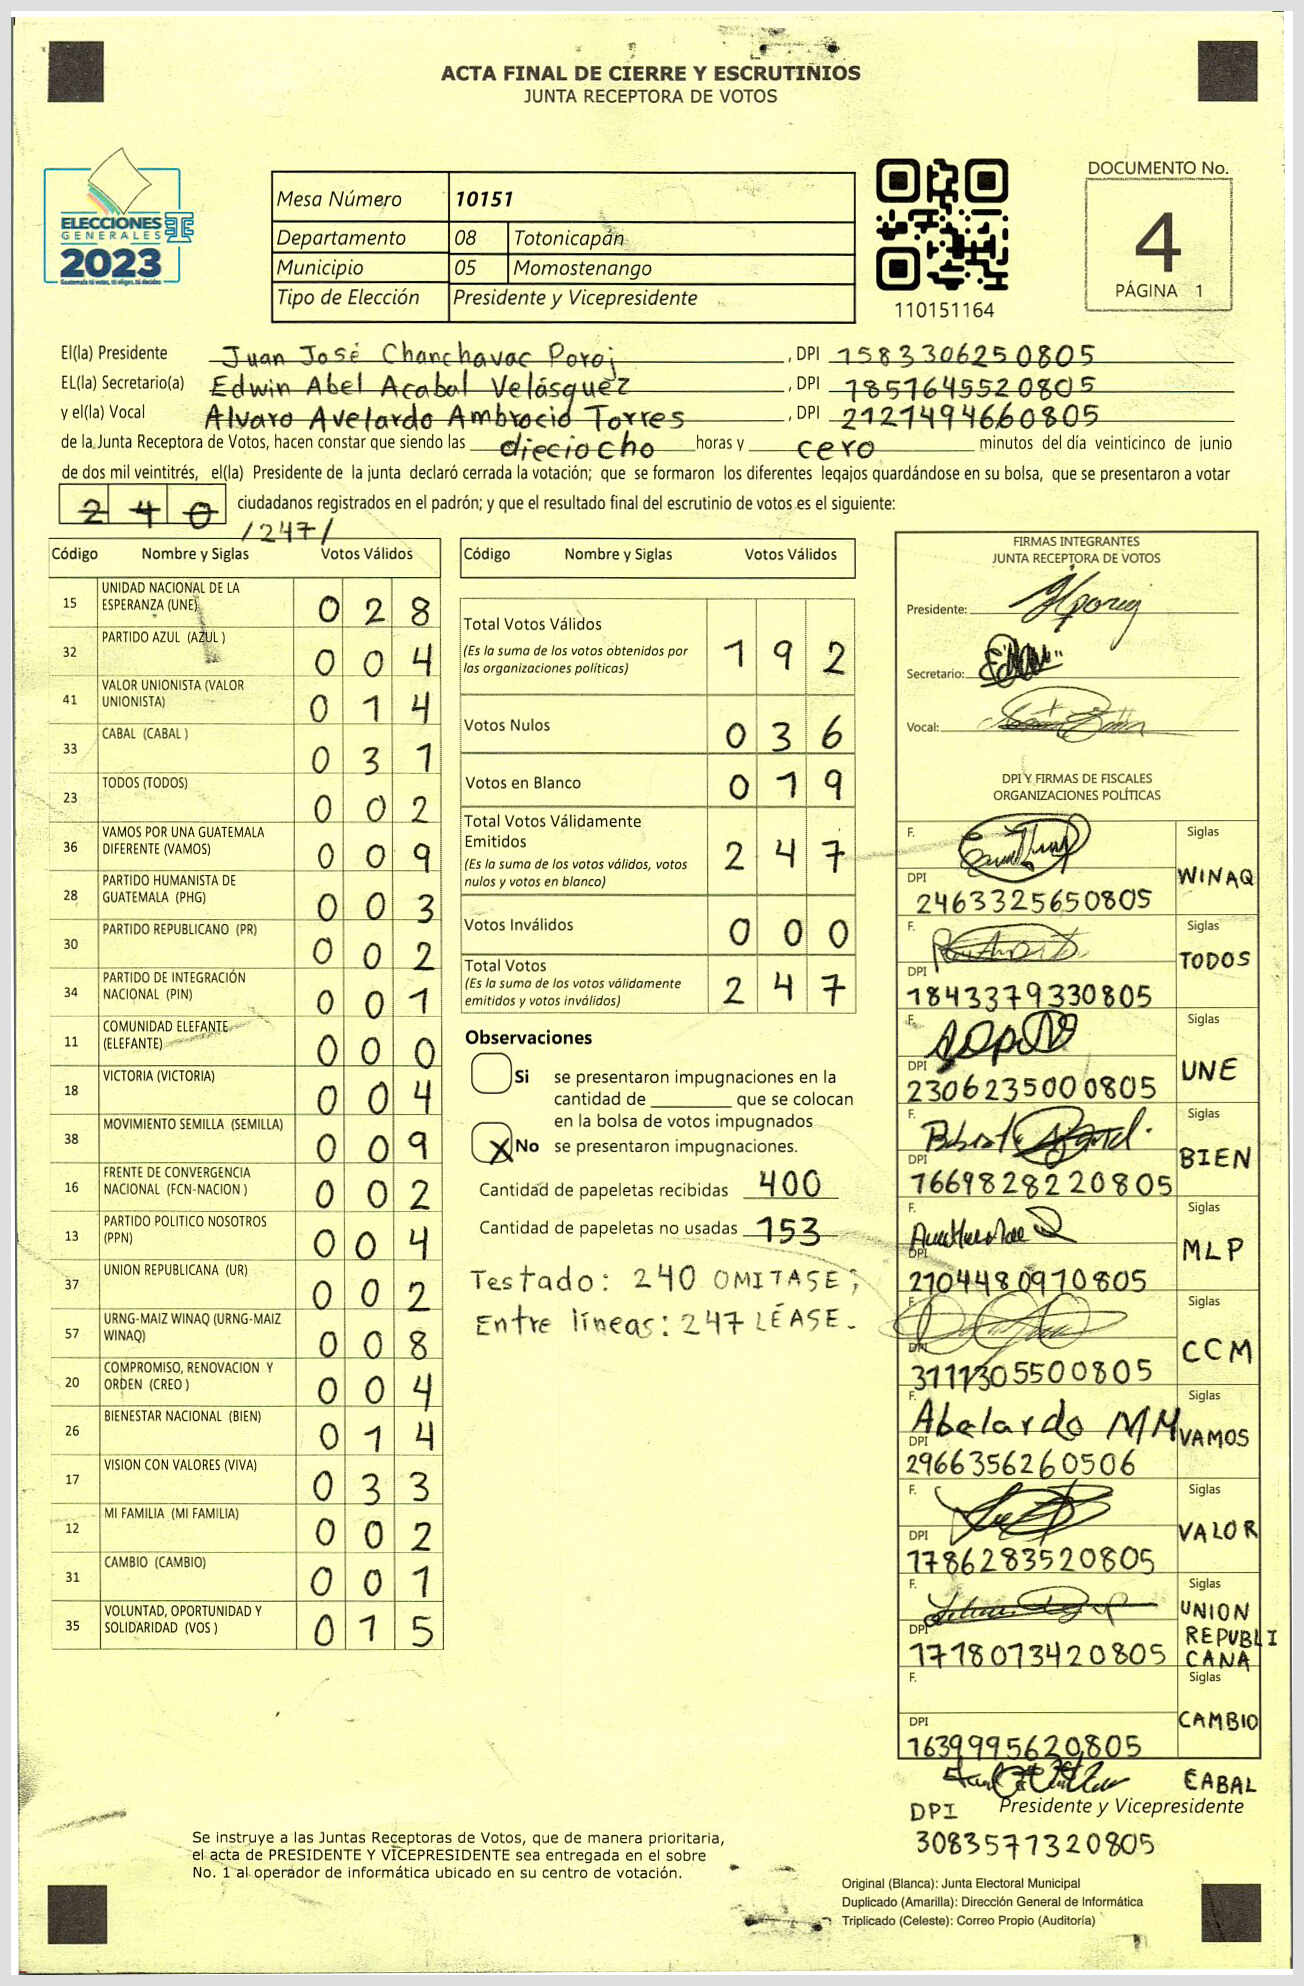 ACTA FINAL DE CIERRE Y ESCRUTINIOS
JUNTA RECEPTORA DE VOTOS
ELECCIONES
GENERALES
2023
Guatemala tú votas, tú eliges, tú decides
Mesa Número 10151
Departamento 08 Totonicapán
Municipio 05 Momostenango
Tipo de Elección Presidente y Vicepresidente
110151164
DOCUMENTO No.
4
PÁGINA 1
El(la) Presidente Juan José Chanchavac Poroj, DPI 1583306250805
EL(la) Secretario(a) Edwin Abel Acabal Velásquez, DPI 1857645520805
y el(la) Vocal Alvaro Avelardo Ambrocio Torres, DPI 2121494660805
de la Junta Receptora de Votos, hacen constar que siendo las dieciocho horas y cero minutos del día veinticinco de junio
de dos mil veintitrés, el(la) Presidente de la junta declaró cerrada la votación; que se formaron los diferentes legajos guardándose en su bolsa, que se presentaron a votar
240 ciudadanos registrados en el padrón; y que el resultado final del escrutinio de votos es el siguiente:
/247/
Código Nombre y Siglas Votos Válidos
15 UNIDAD NACIONAL DE LA ESPERANZA (UNE) 028
32 PARTIDO AZUL (AZUL ) 004
41 VALOR UNIONISTA (VALOR UNIONISTA) 014
33 CABAL (CABAL ) 031
23 TODOS (TODOS) 002
36 VAMOS POR UNA GUATEMALA DIFERENTE (VAMOS) 009
28 PARTIDO HUMANISTA DE GUATEMALA (PHG) 003
30 PARTIDO REPUBLICANO (PR) 002
34 PARTIDO DE INTEGRACIÓN NACIONAL (PIN) 001
11 COMUNIDAD ELEFANTE (ELEFANTE) 000
18 VICTORIA (VICTORIA) 004
38 MOVIMIENTO SEMILLA (SEMILLA) 009
16 FRENTE DE CONVERGENCIA NACIONAL (FCN-NACION ) 002
13 PARTIDO POLITICO NOSOTROS (PPN) 004
37 UNION REPUBLICANA (UR) 002
57 URNG-MAIZ WINAQ (URNG-MAIZ WINAQ) 008
20 COMPROMISO, RENOVACION Y ORDEN (CREO ) 004
26 BIENESTAR NACIONAL (BIEN) 014
17 VISION CON VALORES (VIVA) 033
12 MI FAMILIA (MI FAMILIA) 002
31 CAMBIO (CAMBIO) 001
35 VOLUNTAD, OPORTUNIDAD Y SOLIDARIDAD (VOS ) 015
Código Nombre y Siglas Votos Válidos
Total Votos Válidos 192
(Es la suma de los votos obtenidos por
las organizaciones políticas)
Votos Nulos 036
Votos en Blanco 019
Total Votos Válidamente
Emitidos 247
(Es la suma de los votos válidos, votos
nulos y votos en blanco)
Votos Inválidos 000
Total Votos 247
(Es la suma de los votos válidamente
emitidos y votos inválidos)
Observaciones
Si se presentaron impugnaciones en la
cantidad de ________ que se colocan
en la bolsa de votos impugnados
X No se presentaron impugnaciones.
Cantidad de papeletas recibidas 400
Cantidad de papeletas no usadas 153
Testado: 240 OMITASE;
Entre líneas: 247 LÉASE.
FIRMAS INTEGRANTES
JUNTA RECEPTORA DE VOTOS
Presidente:
Secretario:
Vocal:
DPI Y FIRMAS DE FISCALES
ORGANIZACIONES POLÍTICAS
F. Siglas
WINAQ
DPI
2463325650805
F. Siglas
TODOS
DPI
1843379330805
F. Siglas
UNE
DPI
2306235000805
F. Siglas
BIEN
DPI
1669828220805
F. Siglas
MLP
DPI
2104480970805
F. Siglas
CCM
DPI
3111305500805
F. Siglas
Abelardo MM VAMOS
DPI
2966356260506
F. Siglas
VALOR
DPI
1786283520805
F. Siglas
UNION
REPUBLI
CANA
DPI
1718013420805
F. Siglas
CAMBIO
DPI
1639995620805
CABAL
Presidente y Vicepresidente
DPI
3083571320805
Se instruye a las Juntas Receptoras de Votos, que de manera prioritaria,
el acta de PRESIDENTE Y VICEPRESIDENTE sea entregada en el sobre
No. 1 al operador de informática ubicado en su centro de votación.
Original (Blanca): Junta Electoral Municipal
Duplicado (Amarilla): Dirección General de Informática
Triplicado (Celeste): Correo Propio (Auditoría)